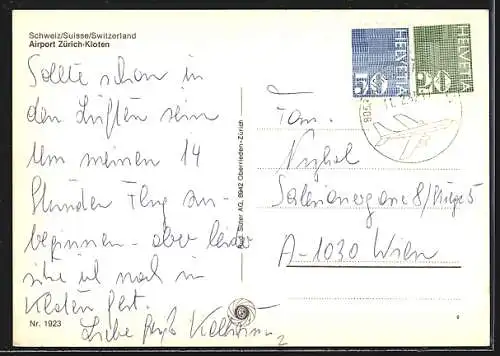 Schweiz/Suisse/Switzerland
Airport Zürich-Kloten
Sollte schon in
den Lüften sein
Um meinen 14
Stunden Flug an-
beginnen - aber leider
sitze ich noch in
Kloten fest.
Liebe
Nr. 1923
Rud. Suter AG, 8942 Oberrieden-Zürich
HELVETIA
50
HELVETIA
20
8058
Fam.
Salesianergasse 8/Stiege 5
A-1030 Wien